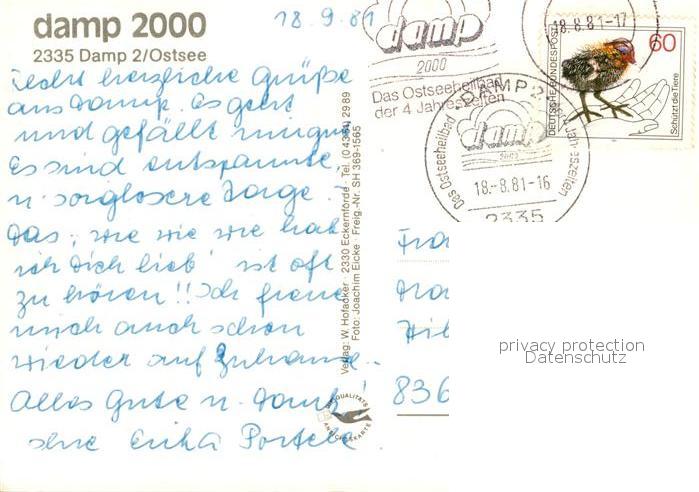 damp 2000
2335 Damp 2/Ostsee
18.9.81
recht herzliche Grüße
aus Damp. Es geht
und gefällt mir gut
Es sind entspannte
u. sorglosere Tage.
Das, wie wie wie hab
ich Dich lieb' ist oft
zu hören!! Ich freue
mich auch schon
wieder auf Zuhause.
Alles Gute u. Dank!
Ihre Erika
Verlag: W. Hofacker · 2330 Eckernförde · Tel. (0 43 51) 2989
Foto: Joachim Eicke · Freig.-Nr. SH 369-1565
QUALITÄTS
ANSICHTSKARTE
damp
2000
Das Ostseeheilbad
der 4 Jahreszeiten
18.8.81-17
DEUTSCHE BUNDESPOST
60
Schützt die Tiere
DAMP 2
Das Ostseeheilbad
Jahreszeiten
damp
2000
18.-8.81-16
2335
Fra
Hil
836
privacy protection
Datenschutz